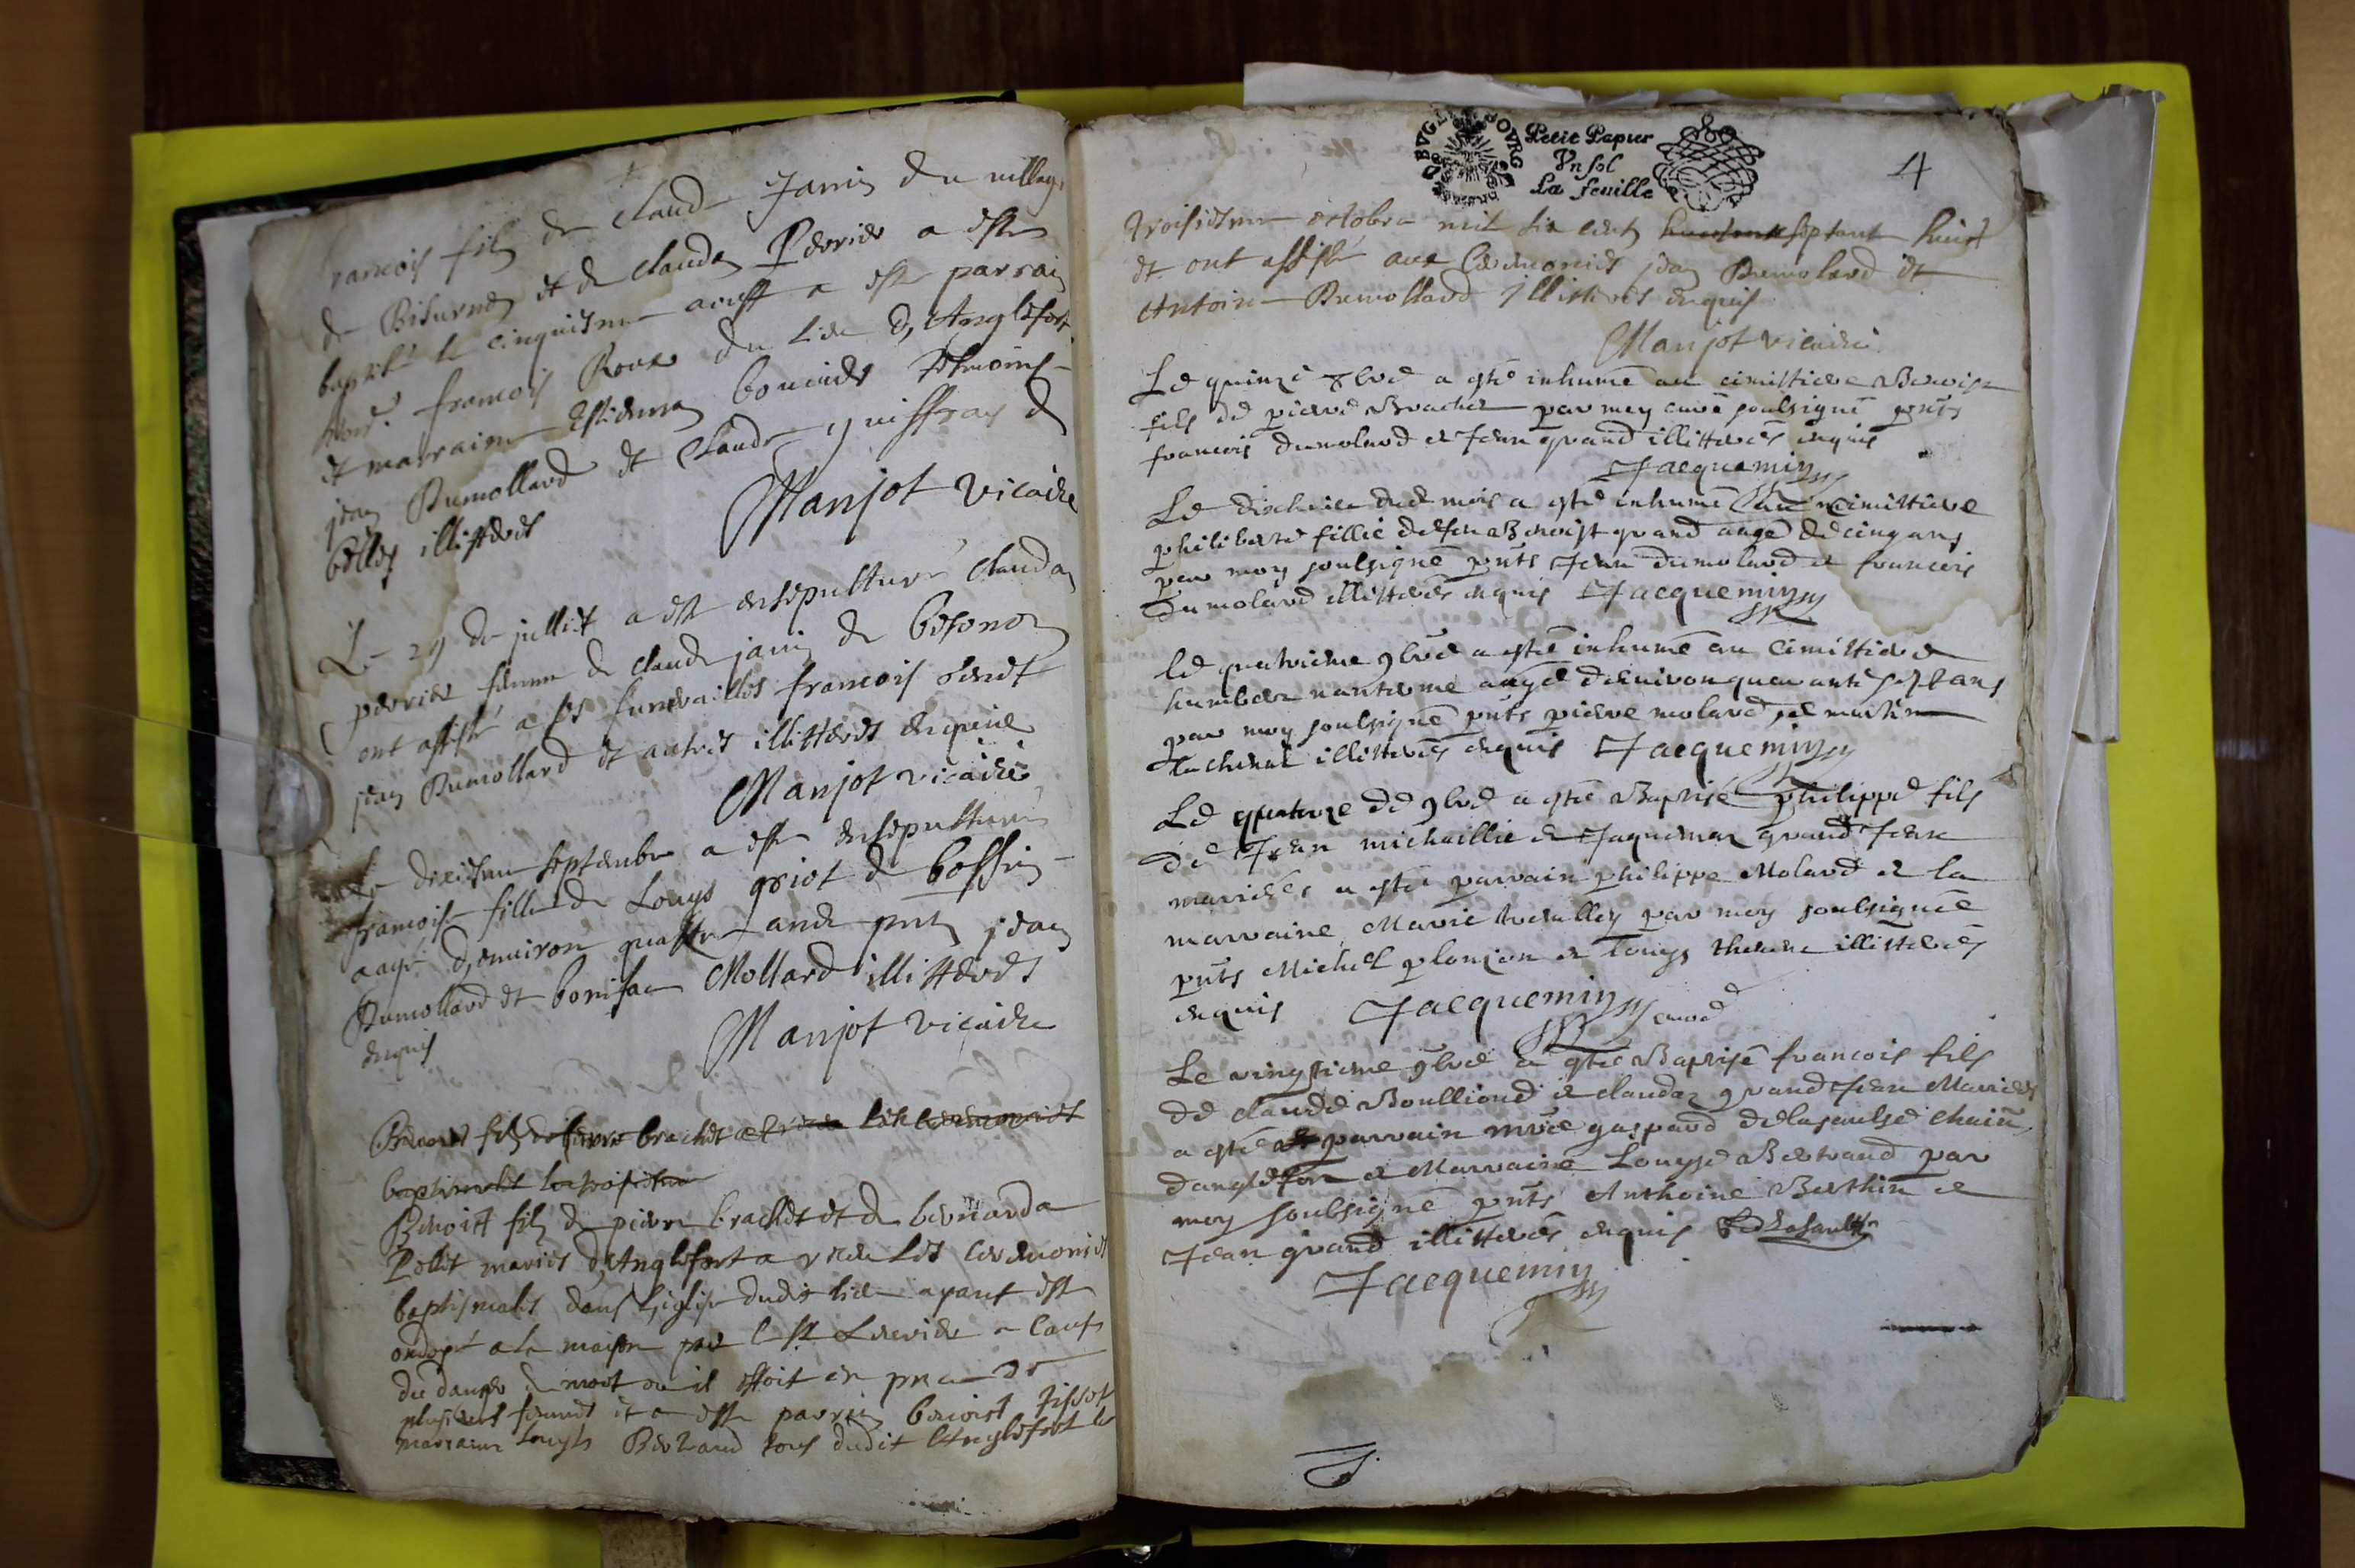 francois fils de claude Janin du village
de Bisurnen et de claudaz Perrier a este
baptisé le cinquiesme aoust a este parrain
francois Roux du lieu d'Anglefort
et marraine Estienna temoins
jean Dumollard et claude guiffray
illitterés
Manjot vicaire
Le 29 de jullit a este ensepulturé claudaz
perrier femme de claude janin de
ont assisté a ses funerailles francois
jean Dumollard et autres illitterés enquis
Manjot vicaire
Le dixiesme septembre a este ensepulturé
francoise fille de Louys griot de bossin
aagé d'environ quattre ands pnts jean
Dumollard et bonifac Mollard illitterés
enquis
Manjot vicaire
fils de pierre brachet
Benoist fils de pierre brachet et de bernarda
Pollet mariés d'Anglefort a receu les ceremonies
baptismales dans l'eglise dudit lieu ayant este
ondoyé a la maison par a cause
du danger de mort ou il estoit en pnce de
plusieurs femmes et a este parrain benoist Tissot
marraine Louyse Bertrand tous dudit Anglefort le
BVGE BOVRG
Petit Papier
Vn sol
La feuille
4
troisiesme octobre mil six cents septante huict
et ont assisté aux ceremonies jean Dumolard et
Antoine Dumollard illitterés enquis
Manjot vicaire
Le quinze 8bre a esté inhumé au cimittiere Benoist
fils de pierre Brachet par moy curé soubsigné pnts
francois dumolard et Jean grand illitterés enquis
Jacquemin
Le dudt mois a esté inhumé au cimittiere
philiberte fillie de feu Benoist grand aagé de cinq ans
par moy soubsigné pnts Jean dumolard et francois
Dumolard illitterés enquis Jacquemin
Le quatrieme 9bre a esté inhumé au cimittiere
humbert nanterme aagé denviron quarante sept ans
par moy soubsigné pnts pierre molard et martin
illitterés enquis Jacquemin
Le quatorze de 9bre a esté Baptisé philippe fils
de Jean michaillie et Jaquemaz grand Jean
mariés a esté parrain philippe Molard et la
marraine Marie par moy soubsigné
pnts Michel plonjon et Louys illitterés
enquis Jacquemin curé
Le vingtieme 9bre a esté Baptisé francois fils
de claude Boulliond et claudaz grand Jean Mariés
a esté parrain mre gaspard delasaulse
danglefort et Marraine Louyse Bertrand par
moy soubsigné pnts Anthoine Berthin et
Jean grand illitterés enquis Delasaulse
Jacquemin